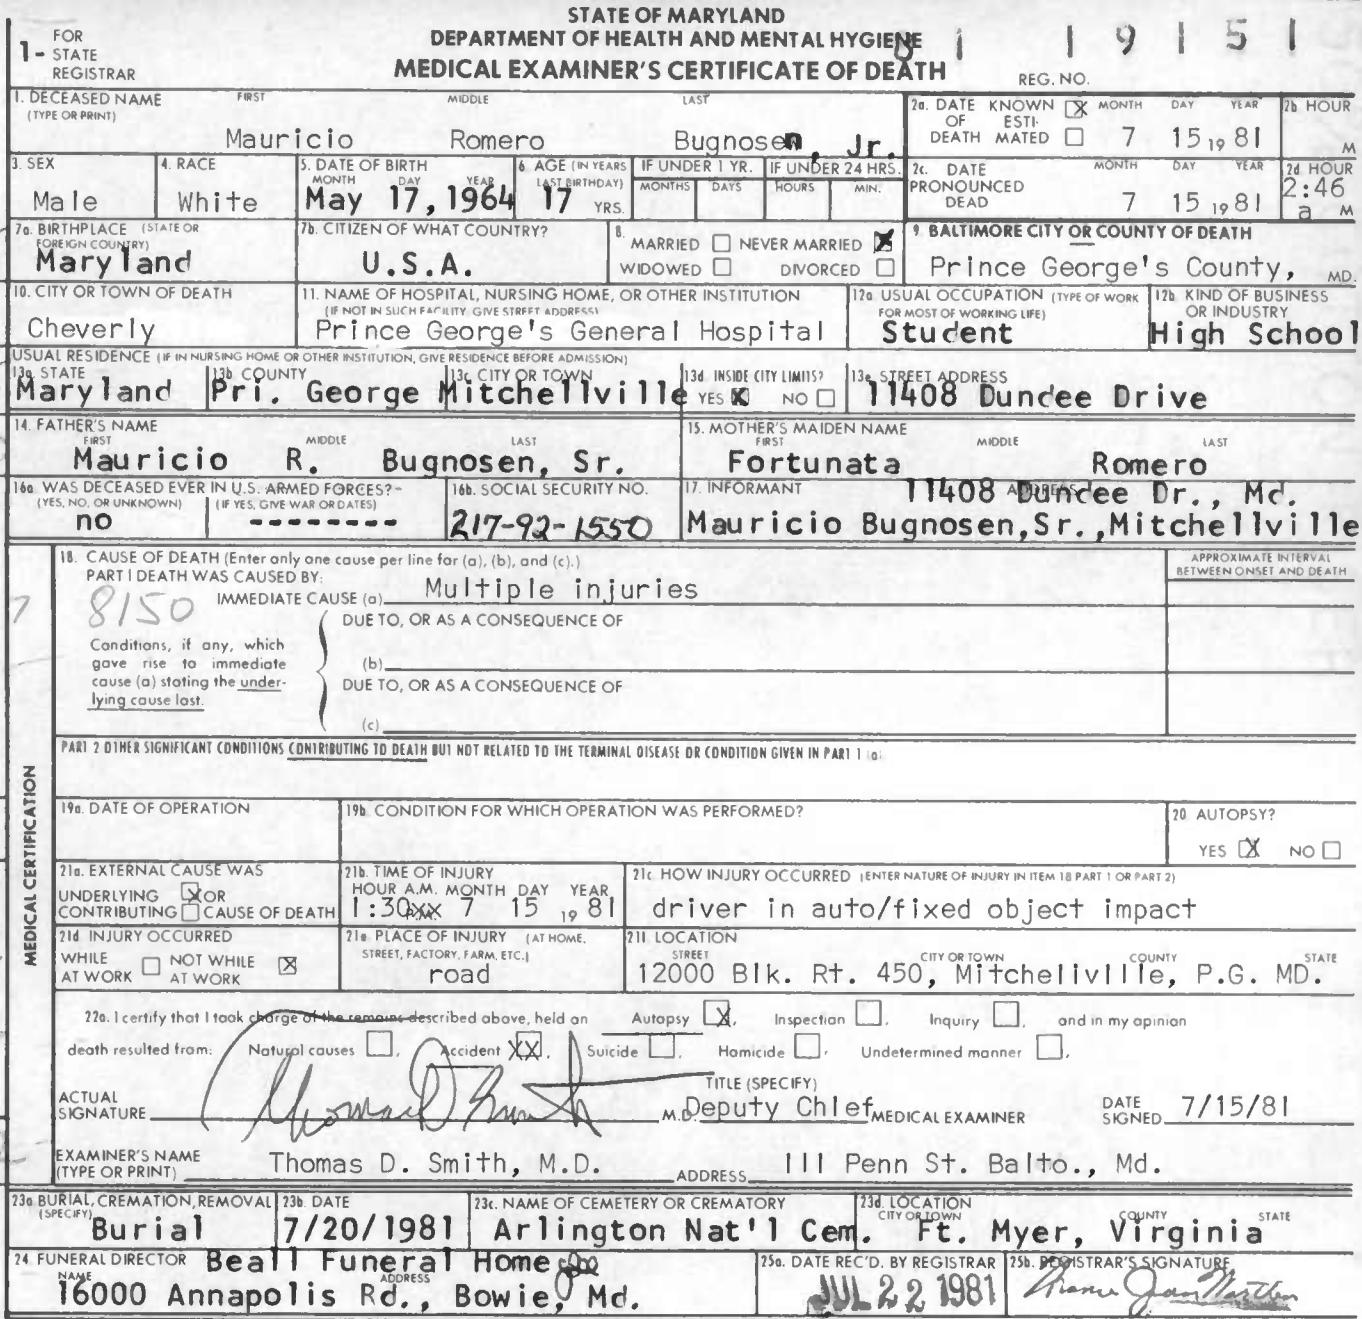 STATE OF MARYLAND
DEPARTMENT OF HEALTH AND MENTAL HYGIENE
MEDICAL EXAMINER'S CERTIFICATE OF DEATH
1- FOR STATE REGISTRAR
81 19151
REG. NO.
1. DECEASED NAME (TYPE OR PRINT) FIRST MIDDLE LAST
Mauricio Romero Bugnosen, Jr.
2a. DATE OF DEATH KNOWN X ESTIMATED MONTH DAY YEAR
7 15 19 81
2b HOUR M
3. SEX
Male
4. RACE
White
5. DATE OF BIRTH MONTH DAY YEAR
May 17, 1964
6. AGE (IN YEARS LAST BIRTHDAY)
17 YRS.
IF UNDER 1 YR. MONTHS DAYS
IF UNDER 24 HRS. HOURS MIN.
2c. DATE PRONOUNCED DEAD MONTH DAY YEAR
7 15 19 81
2d HOUR
2:46 a M
7a. BIRTHPLACE (STATE OR FOREIGN COUNTRY)
Maryland
7b. CITIZEN OF WHAT COUNTRY?
U.S.A.
8. MARRIED NEVER MARRIED X
WIDOWED DIVORCED
9. BALTIMORE CITY OR COUNTY OF DEATH
Prince George's County, MD.
10. CITY OR TOWN OF DEATH
Cheverly
11. NAME OF HOSPITAL, NURSING HOME, OR OTHER INSTITUTION
(IF NOT IN SUCH FACILITY, GIVE STREET ADDRESS)
Prince George's General Hospital
12a USUAL OCCUPATION (TYPE OF WORK FOR MOST OF WORKING LIFE)
Student
12b. KIND OF BUSINESS OR INDUSTRY
High School
USUAL RESIDENCE (IF IN NURSING HOME OR OTHER INSTITUTION, GIVE RESIDENCE BEFORE ADMISSION)
13a. STATE
Maryland
13b COUNTY
Pri. George
13c CITY OR TOWN
Mitchellville
13d. INSIDE CITY LIMITS?
YES X NO
13e. STREET ADDRESS
11408 Dundee Drive
14. FATHER'S NAME FIRST MIDDLE LAST
Mauricio R. Bugnosen, Sr.
15. MOTHER'S MAIDEN NAME FIRST MIDDLE LAST
Fortunata Romero
16a WAS DECEASED EVER IN U.S. ARMED FORCES?-
(YES, NO, OR UNKNOWN) (IF YES, GIVE WAR OR DATES)
no --------
16b. SOCIAL SECURITY NO.
217-92-1550
17. INFORMANT ADDRESS
11408 Dundee Dr., Md.
Mauricio Bugnosen,Sr.,Mitchellville
MEDICAL CERTIFICATION
18. CAUSE OF DEATH (Enter only one cause per line for (a), (b), and (c).)
APPROXIMATE INTERVAL BETWEEN ONSET AND DEATH
PART I DEATH WAS CAUSED BY:
7 8150
IMMEDIATE CAUSE (a) Multiple injuries
DUE TO, OR AS A CONSEQUENCE OF
Conditions, if any, which gave rise to immediate cause (a) stating the underlying cause last.
(b)
DUE TO, OR AS A CONSEQUENCE OF
(c)
PART 2 OTHER SIGNIFICANT CONDITIONS CONTRIBUTING TO DEATH BUT NOT RELATED TO THE TERMINAL DISEASE OR CONDITION GIVEN IN PART 1 (a)
19a. DATE OF OPERATION
19b CONDITION FOR WHICH OPERATION WAS PERFORMED?
20. AUTOPSY?
YES X NO
21a. EXTERNAL CAUSE WAS
UNDERLYING X OR
CONTRIBUTING CAUSE OF DEATH
21b. TIME OF INJURY
HOUR A.M. MONTH DAY YEAR
1:30 xx P.M. 7 15 19 81
21c HOW INJURY OCCURRED (ENTER NATURE OF INJURY IN ITEM 18 PART 1 OR PART 2)
driver in auto/fixed object impact
21d INJURY OCCURRED
WHILE AT WORK NOT WHILE AT WORK X
21e PLACE OF INJURY (AT HOME, STREET, FACTORY, FARM, ETC.)
road
21f. LOCATION STREET CITY OR TOWN COUNTY STATE
12000 Blk. Rt. 450, Mitchellville, P.G. MD.
22a. I certify that I took charge of the remains described above, held an Autopsy X, Inspection , Inquiry , and in my opinion
death resulted from: Natural causes , Accident XX, Suicide , Homicide , Undetermined manner .
ACTUAL SIGNATURE Thomas D Smith M.D.
TITLE (SPECIFY)
Deputy Chief MEDICAL EXAMINER
DATE SIGNED 7/15/81
EXAMINER'S NAME (TYPE OR PRINT) Thomas D. Smith, M.D.
ADDRESS 111 Penn St. Balto., Md.
23a BURIAL, CREMATION, REMOVAL (SPECIFY)
Burial
23b. DATE
7/20/1981
23c. NAME OF CEMETERY OR CREMATORY
Arlington Nat'l Cem.
23d. LOCATION CITY OR TOWN COUNTY STATE
Ft. Myer, Virginia
24. FUNERAL DIRECTOR NAME ADDRESS
Beall Funeral Home
16000 Annapolis Rd., Bowie, Md.
25a. DATE REC'D. BY REGISTRAR
JUL 22 1981
25b. REGISTRAR'S SIGNATURE